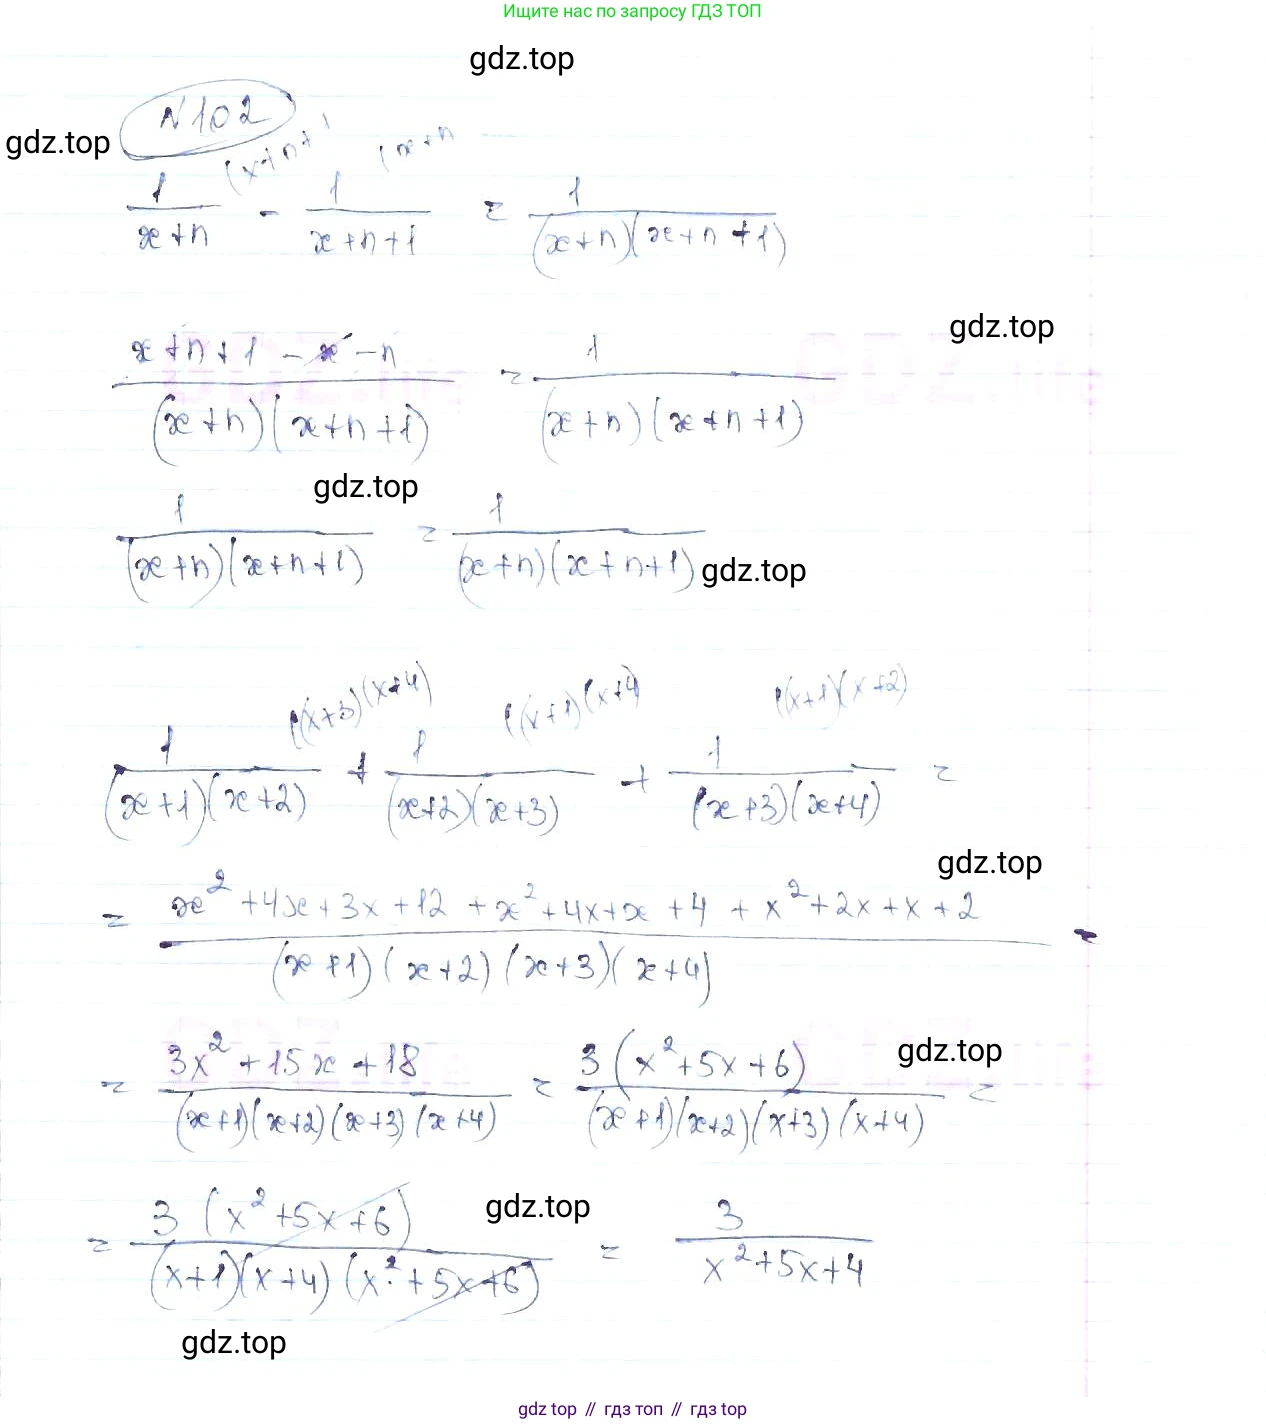 Ищите нас по запросу ГДЗ ТОП
gdz.top
N102
gdz.top
(x+n+1 (x+n
1/(x+n) - 1/(x+n+1) = 1/((x+n)(x+n+1))
gdz.top
(x+n+1-x-n)/((x+n)(x+n+1)) = 1/((x+n)(x+n+1))
gdz.top
1/((x+n)(x+n+1)) = 1/((x+n)(x+n+1))
gdz.top
((x+3)(x+4) ((x+1)(x+4) ((x+1)(x+2)
1/((x+1)(x+2)) + 1/((x+2)(x+3)) + 1/((x+3)(x+4)) =
gdz.top
= (x²+4x+3x+12+x²+4x+x+4+x²+2x+x+2)/((x+1)(x+2)(x+3)(x+4)) =
gdz.top
= (3x²+15x+18)/((x+1)(x+2)(x+3)(x+4)) = 3(x²+5x+6)/((x+1)(x+2)(x+3)(x+4)) =
gdz.top
= 3(x²+5x+6)/((x+1)(x+4)(x²+5x+6)) = 3/(x²+5x+4)
gdz.top
gdz top // гдз топ // гдз top